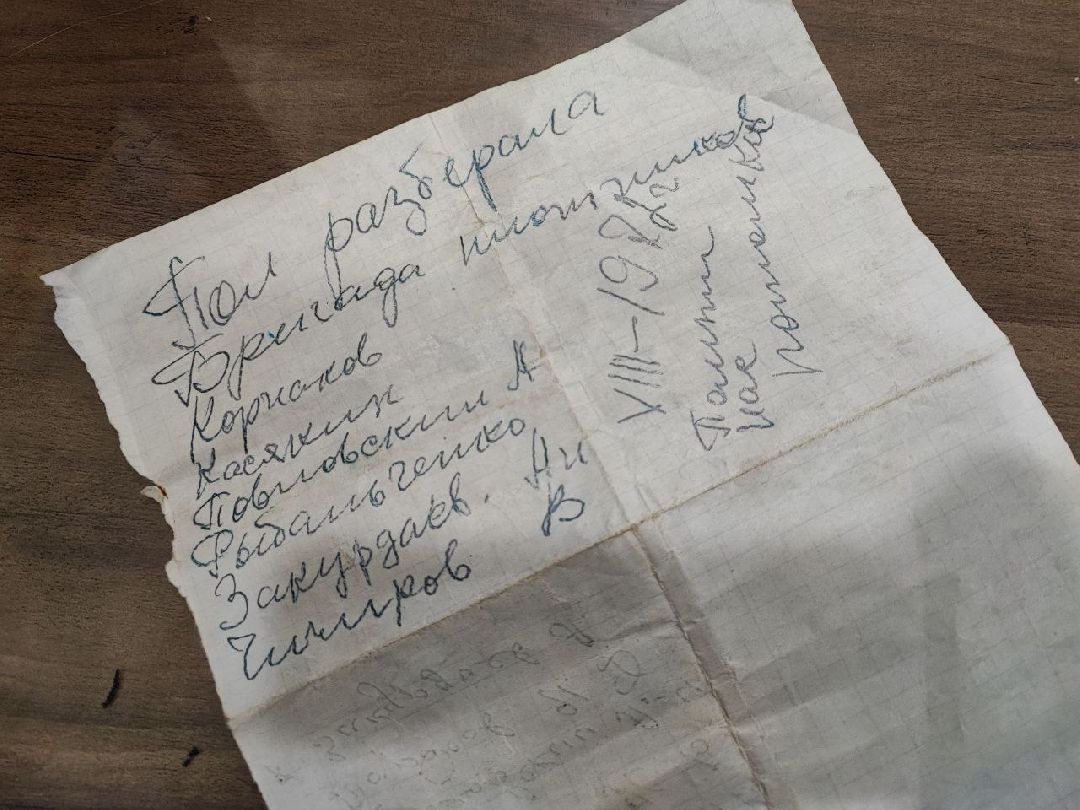 Пол разберала
Бригада плотников
Корнаков
Касяник
Повловский А
Рыбальченко
Закурдаев. Ан
Чимиров В
VIII-1982г
Помни
нас
потомки